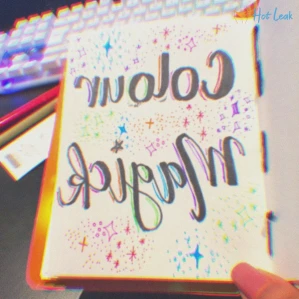 Hot Leak
Colour
Magick